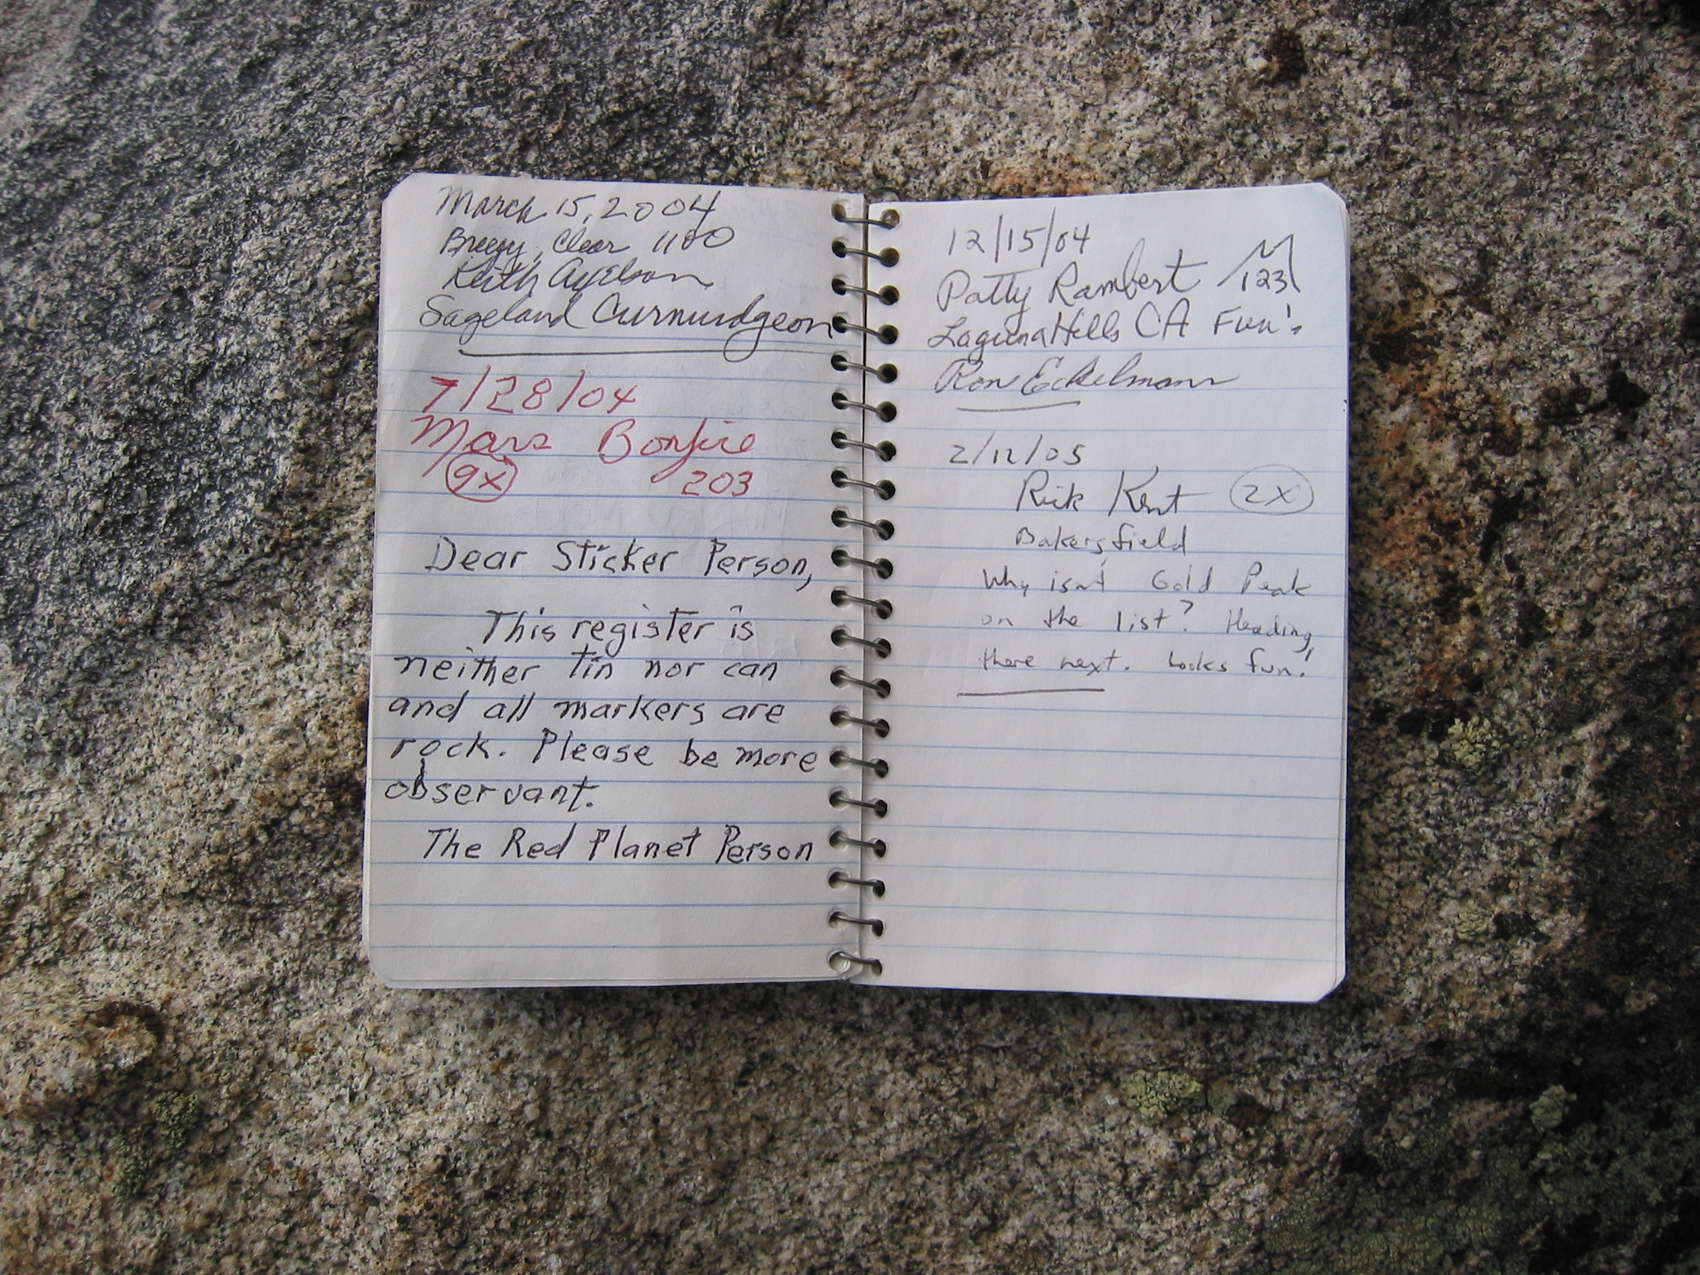 March 15, 2004
Breezy, Clear 1100
Keith
Sageland Curmurdgeon
7/28/04
Mars Bonfire
9x 203
Dear Sticker Person,
This register is
neither tin nor can
and all markers are
rock. Please be more
observant.
The Red Planet Person
12/15/04
Patty Rambert 123
Laguna Hills CA Fun!
Ron Eckelmann
2/12/05
Rick Kent 2X
Bakersfield
Why isn't Gold Peak
on the list? Heading
there next. Looks fun!